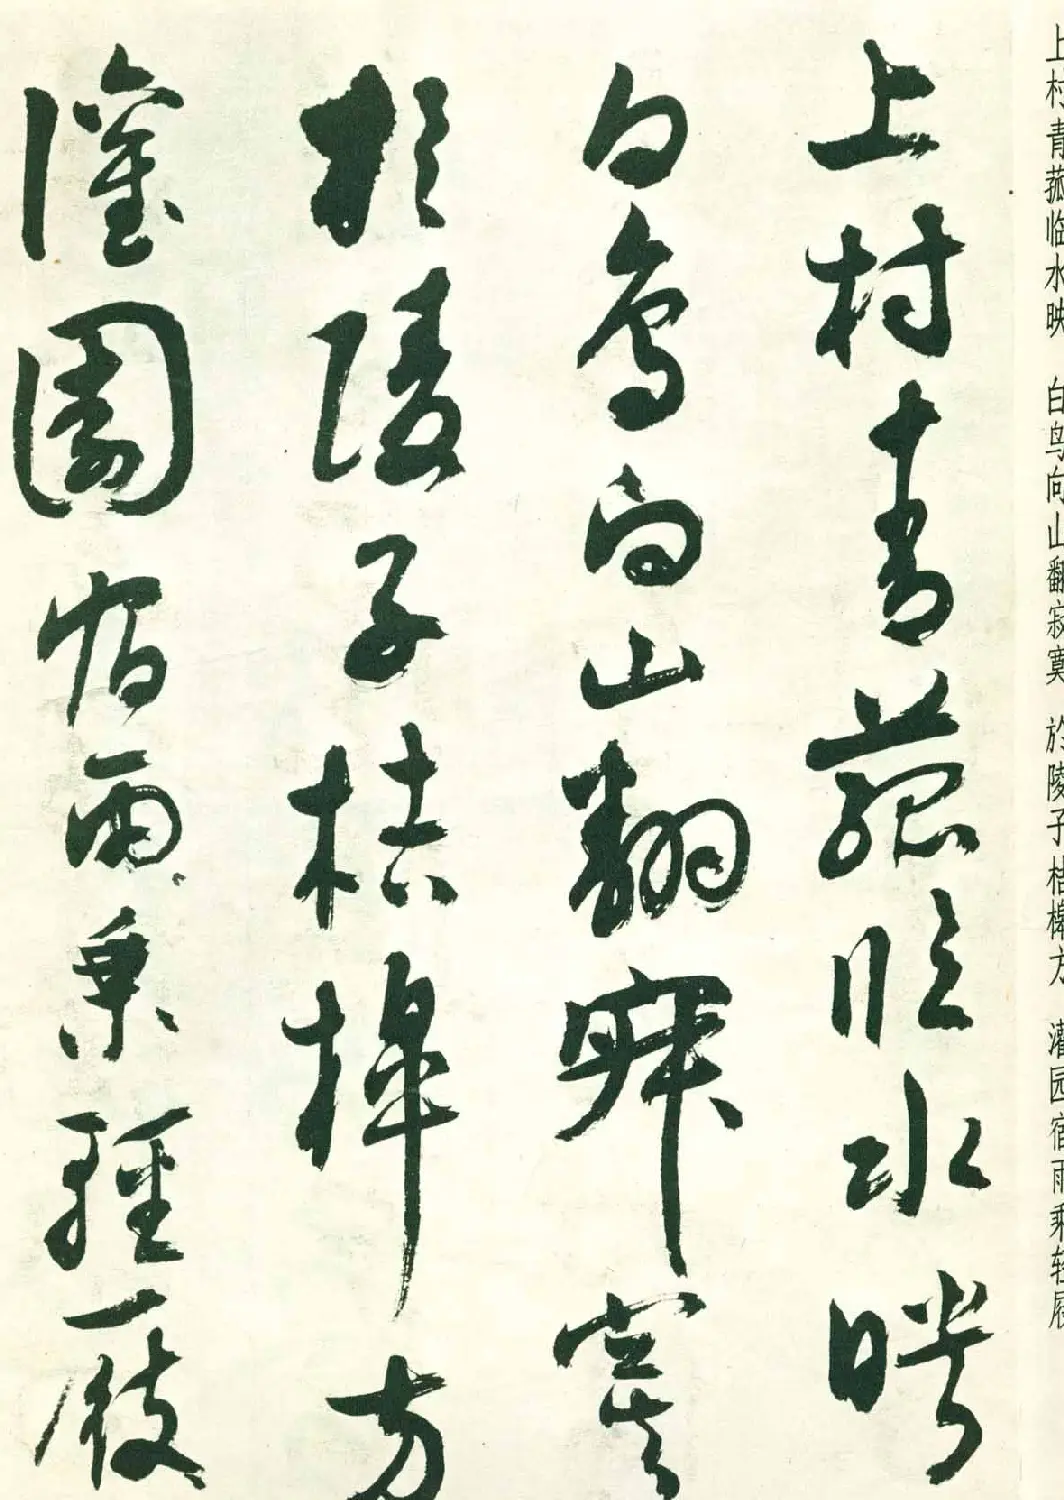 上村青菰临水映 白鸟向山翻寂寞 於陵子桔槔方 灌园宿雨乘轻屐
上村青菰臨水映
白鳥向山翻寂寞
於陵子桔槔方
灌園宿雨乘輕屐